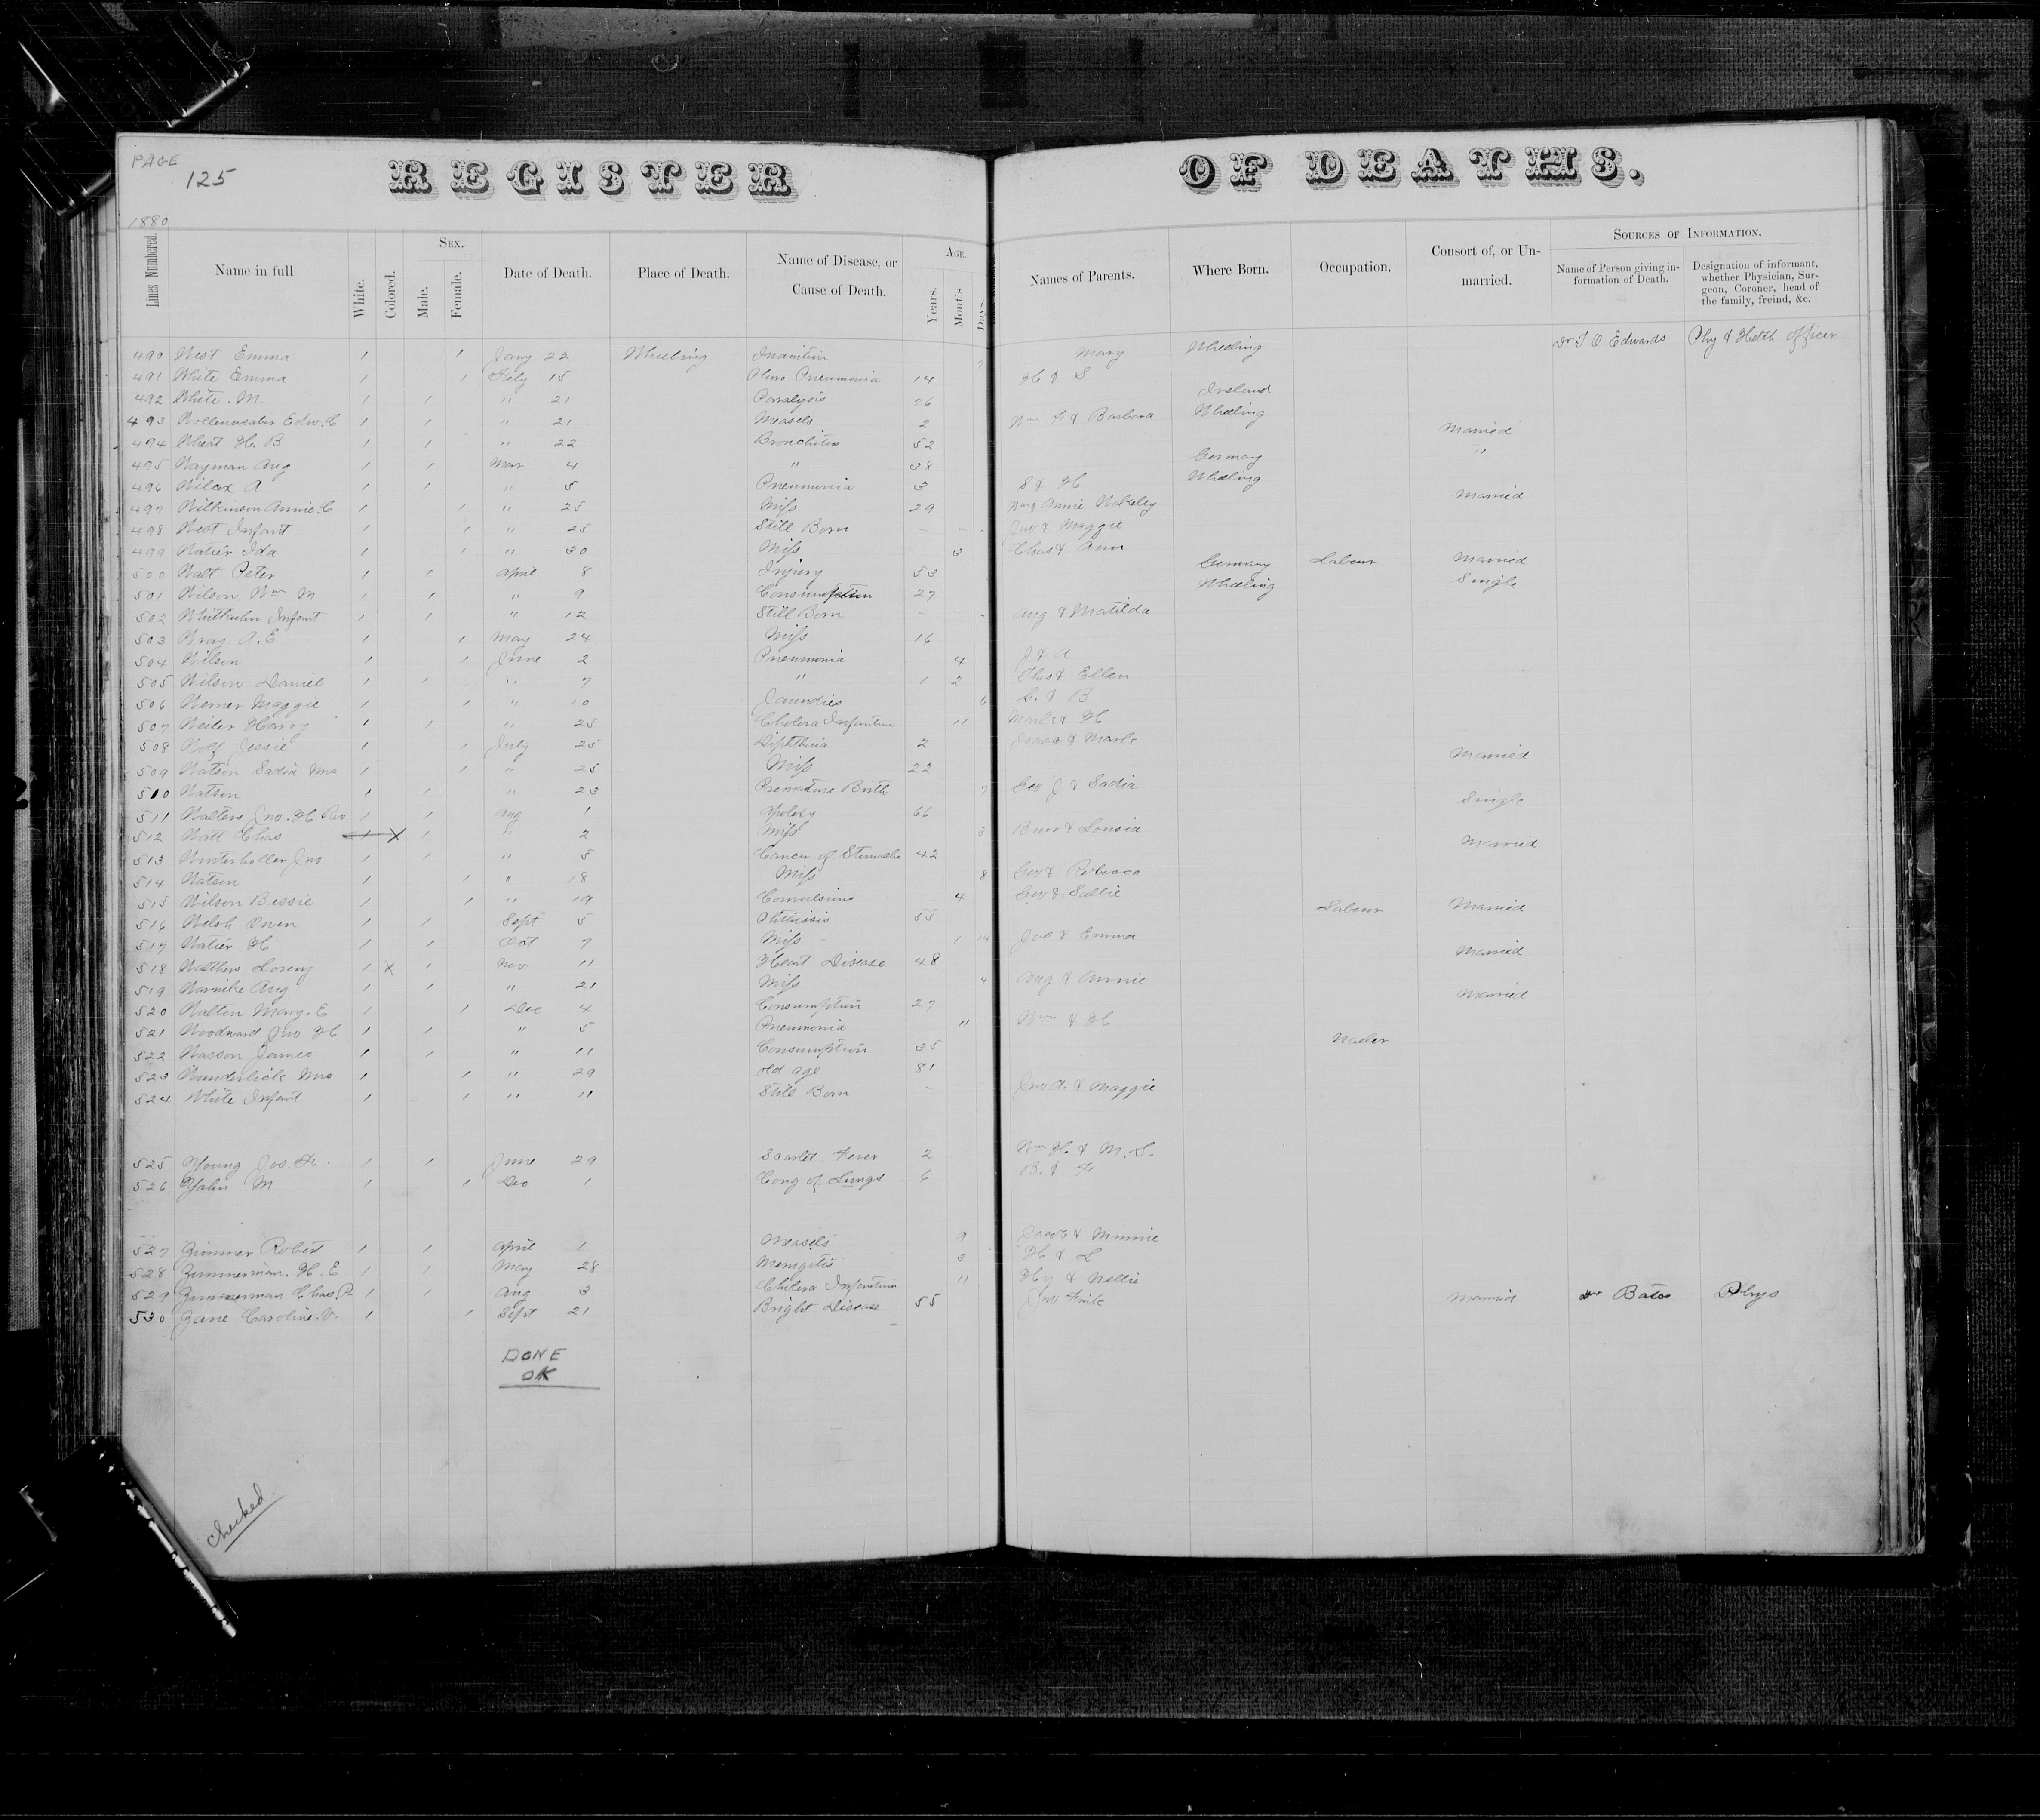 PAGE
125
REGISTER OF DEATHS.
1880
Lines Numbered. Name in full White. Colored. Sex. Male. Female. Date of Death. Place of Death. Name of Disease, or Cause of Death. Age. Years. Mont's Days. Names of Parents. Where Born. Occupation. Consort of, or Un-married. Sources of Information. Name of Person giving in-formation of Death. Designation of informant, whether Physician, Sur-geon, Coroner, head of the family, freind, &c.
490 West Emma / / Jany 22 Wheeling Inanition 7 Mary Wheeling Dr T O Edwards Phy & Helth Officer
491 White Emma / / Feby 15 Pneumonia 14 H & S
492 White. M / / " 21 Paralysis 76 Ireland
493 Wollenweaber Edw. C / / " 21 Measels 2 Wm F & Barbara Wheeling
494 Wheat H. B / / " 22 Bronchites 52 Married
495 Wayman Aug / / Mar 4 " 38 Germany "
496 Wilcox A / / " 5 Pneumonia 3 S & H Wheeling
497 Wilkinson Annie. C / / " 25 Miss 29 Wm & Annie Married
498 West Infant / / " 25 Still Born – – - Jno & Maggie
499 Watier Ida / / " 30 Miss 3 Chas & Ann
500 Walt Peter / / April 8 Injury 53 Germany Labour Married
501 Wilson Wm M / / " 9 Consumption 27 Wheeling Single
502 Infant / / " 12 Still Born – – - Aug & Matilda
503 Wray A. E / / May 24 Miss 16
504 Wilson / / June 2 Pneumonia 4 J & A
505 Wilson Daniel / / " 7 " 1 2 Thos & Ellen
506 Werner Maggie / / " 10 Jaundies 6 G. & B
507 Weiler Harry / / " 25 Cholera Infantum 11 & H
508 Wolf Jessie / / July 25 Diphtheria 2 Isaac &
509 Watson Sadia Mrs / / " 25 Miss 22 Married
510 Watson / / " 23 Premature Birth 7 Geo J & Sadia
511 Walters Jno. H Rev / / Aug 1 Apolexy 66 Single
512 Watt Chas / X / " 2 Miss 3 Burr & Lousia
513 Winterholler Jno / / " 5 Cancer of Stomache 42 Married
514 Watson / / " 18 Miss 8 Geo & Rebecca
515 Wilson Bessie / / " 19 Convulsions 4 Geo & Sallie
516 Welsh Owen / / Sept 5 Phthissis 55 Labour Married
517 Watier H / / Oct 7 Miss 1 14 Joe & Emma
518 Walthers Lorenz / X / Nov 11 Heart Disease 48 Married
519 Warnike Aug / / " 21 Miss 4 Aug & Annie
520 Walton Mary. E / / Dec 4 Consumption 27 Married
521 Woodward Jno H / / " 5 Pneumonia 11 Wm & H
522 Wasson James / / " 11 Consumption 35 Nailer
523 Wunderlick Mrs / / " 29 Old age 81
524 White Infant / / " 11 Still Born – Jno A. & Maggie
525 Young Jos. Fr. / / June 29 Scarlet Fever 2 Wm H & M. S.
526 Yahn M / / Dec 1 Cong of Lungs 6 B. & F
527 Zimmer Robert / / April 1 Measels 9 Jacob & Minnie
528 Zimmerman. H. E / / May 28 Menigitis 3 H & L
529 Zimmerman Chas. P. / / Aug 3 Cholera Infantum 11 Hy & Nellie
530 Zane Caroline. V. / / Sept 21 Bright Disease 55 Jno Married Dr Bates Phys
DONE
OK
checked